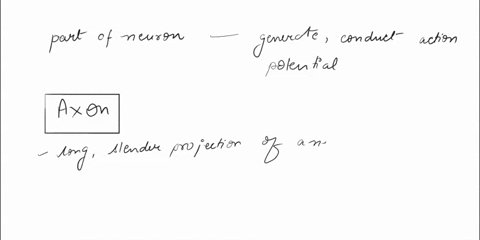 part of neuron — generate, conduct action
potential
Axon
- long, slender projection of an